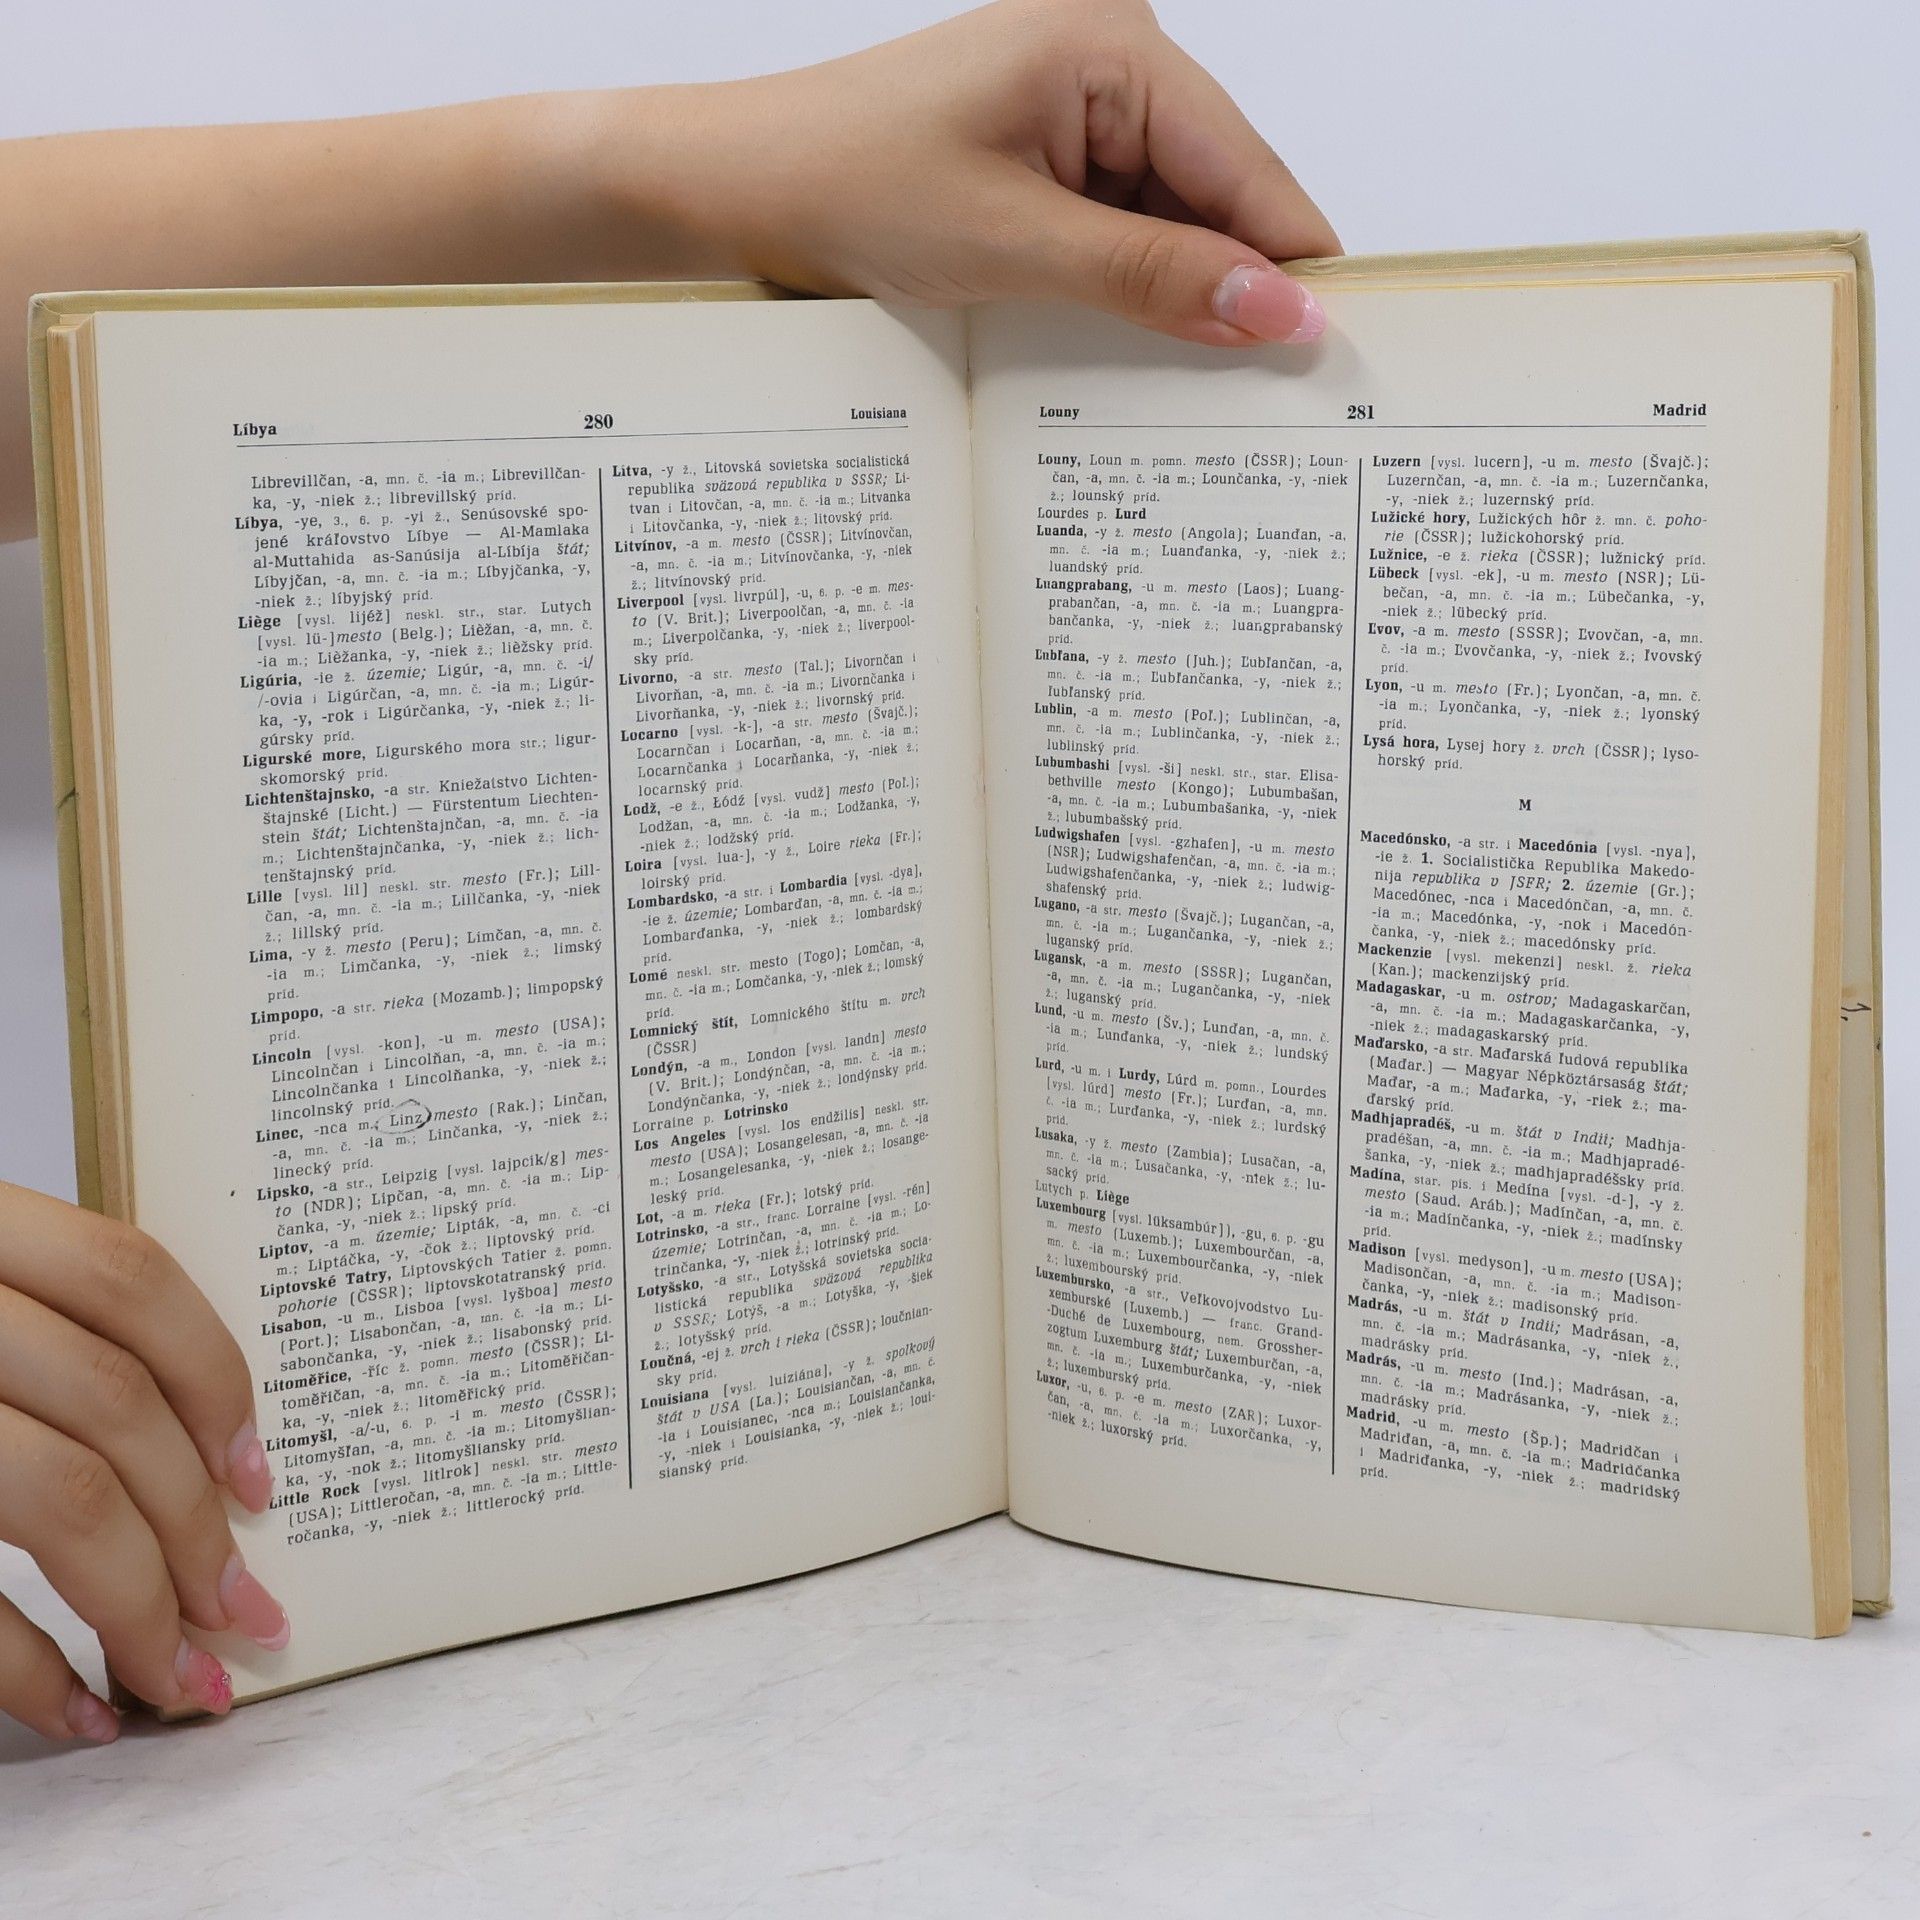 Líbya 280 Louisiana
Librevillčan, -a, mn. č. -ia m.; Librevillčan-
ka, -y, -niek ž.; librevillský príd.
Líbya, -ye, 3., 6. p. -yi ž., Senúsovské spo-
jené kráľovstvo Líbye — Al-Mamlaka
al-Muttahida as-Sanúsija al-Líbíja štát;
Líbyjčan, -a, mn. č. -ia m.; Líbyjčanka, -y,
-niek ž.; líbyjský príd.
Liège [vysl. lijéž] neskl. str., star. Lutych
[vysl. lü-] mesto (Belg.); Liěžan, -a, mn. č.
-ia m.; Liěžanka, -y, -niek ž.; liěžsky príd.
Ligúria, -ie ž. územie; Ligúr, -a, mn. č. -i/
/-ovia i Ligúrčan, -a, mn. č. -ia m.; Ligúr-
ka, -y, -rok i Ligúrčanka, -y, -niek ž.; li-
gúrsky príd.
Ligurské more, Ligurského mora str.; ligur-
skomorský príd.
Lichtenštajnsko, -a str. Kniežatstvo Lichten-
štajnské (Licht.) — Fürstentum Liechten-
stein štát; Lichtenštajnčan, -a, mn. č. -ia
m.; Lichtenštajnčanka, -y, -niek ž.; lich-
tenštajnský príd.
Lille [vysl. lil] neskl. str. mesto (Fr.); Lill-
čan, -a, mn. č. -ia m.; Lillčanka, -y, -niek
ž.; lillský príd.
Lima, -y ž. mesto (Peru); Limčan, -a, mn. č.
-ia m.; Limčanka, -y, -niek ž.; limský
príd.
Limpopo, -a str. rieka (Mozamb.); limpopský
príd.
Lincoln [vysl. -kon], -u m. mesto (USA);
Lincolnčan i Lincolňan, -a, mn. č. -ia m.;
Lincolnčanka i Lincolňanka, -y, -niek ž.;
lincolnský príd.
Linec, -nca m., Linz mesto (Rak.); Linčan,
-a, mn. č. -ia m.; Linčanka, -y, -niek ž.;
linecký príd.
Lipsko, -a str., Leipzig [vysl. lajpcik/g] mes-
to (NDR); Lipčan, -a, mn. č. -ia m.; Lip-
čanka, -y, -niek ž.; lipský príd.
Liptov, -a m. územie; Lipták, -a, mn. č. -ci
m.; Liptáčka, -y, -čok ž.; liptovský príd.
Liptovské Tatry, Liptovských Tatier ž. pomn.
pohorie (ČSSR); liptovskotatranský príd.
Lisabon, -u m., Lisboa [vysl. lyšboa] mesto
(Port.); Lisabončan, -a, mn. č. -ia m.; Li-
sabončanka, -y, -niek ž.; lisabonský príd.
Litoměřice, -říc ž. pomn. mesto (ČSSR); Li-
toměřičan, -a, mn. č. -ia m.; Litoměřičan-
ka, -y, -niek ž.; litoměřický príd.
Litomyšl, -a/-u, 6. p. -i m. mesto (ČSSR);
Litomyšľan, -a, mn. č. -ia m.; Litomyšlian-
ka, -y, -nok ž.; litomyšliansky príd.
Little Rock [vysl. litlrok] neskl. str. mesto
(USA); Littleročan, -a, mn. č. -ia m.; Little-
ročanka, -y, -niek ž.; littlerocký príd.
Litva, -y ž., Litovská sovietska socialistická
republika sväzová republika v SSSR; Li-
tvan i Litovčan, -a, mn. č. -ia m.; Litvanka
i Litovčanka, -y, -niek ž.; litovský príd.
Litvínov, -a m. mesto (ČSSR); Litvínovčan,
-a, mn. č. -ia m.; Litvínovčanka, -y, -niek
ž.; litvínovský príd.
Liverpool [vysl. livrpúl], -u, 6. p. -e m. mes-
to (V. Brit.); Liverpoolčan, -a, mn. č. -ia
m.; Liverpolčanka, -y, -niek ž.; liverpool-
sky príd.
Livorno, -a str. mesto (Tal.); Livornčan i
Livorňan, -a, mn. č. -ia m.; Livornčanka i
Livorňanka, -y, -niek ž.; livornský príd.
Locarno [vysl. -k-], -a str. mesto (Švajč.);
Locarnčan i Locarňan, -a, mn. č. -ia m.;
Locarnčanka i Locarňanka, -y, -niek ž.;
locarnský príd.
Lodž, -e ž., Łódź [vysl. vudž] mesto (Poľ.);
Lodžan, -a, mn. č. -ia m.; Lodžanka, -y,
-niek ž.; lodžský príd.
Loira [vysl. lua-], -y ž., Loire rieka (Fr.);
loirský príd.
Lombardsko, -a str. i Lombardia [vysl. -dya],
-ie ž. územie; Lombarďan, -a, mn. č. -ia m.;
Lombarďanka, -y, -niek ž.; lombardský
príd.
Lomé neskl. str. mesto (Togo); Lomčan, -a,
mn. č. -ia m.; Lomčanka, -y, -niek ž.; lomský
príd.
Lomnický štít, Lomnického štítu m. vrch
(ČSSR)
Londýn, -a m., London [vysl. landn] mesto
(V. Brit.); Londýnčan, -a, mn. č. -ia m.;
Londýnčanka, -y, -niek ž.; londýnsky príd.
Lorraine p. Lotrinsko
Los Angeles [vysl. los endžilis] neskl. str.
mesto (USA); Losangelesan, -a, mn. č. -ia
m.; Losangelesanka, -y, -niek ž.; losange-
leský príd.
Lot, -a m. rieka (Fr.); lotský príd.
Lotrinsko, -a str., franc. Lorraine [vysl. -rén]
územie; Lotrinčan, -a, mn. č. -ia m.; Lo-
trinčanka, -y, -niek ž.; lotrinský príd.
Lotyšsko, -a str., Lotyšská sovietska socia-
listická republika sväzová republika
v SSSR; Lotyš, -a m.; Lotyška, -y, -šiek
ž.; lotyšský príd.
Loučná, -ej ž. vrch i rieka (ČSSR); loučnian-
sky príd.
Louisiana [vysl. luiziána], -y ž. spolkový
štát v USA (La.); Louisiančan, -a, mn. č.
-ia i Louisianec, -nca m.; Louisiančanka,
-y, -niek i Louisianka, -y, -niek ž.; loui-
sianský príd.
Louny 281 Madrid
Louny, Loun m. pomn. mesto (ČSSR); Loun-
čan, -a, mn. č. -ia m.; Lounčanka, -y, -niek
ž.; lounský príd.
Lourdes p. Lurd
Luanda, -y ž. mesto (Angola); Luanďan, -a,
mn. č. -ia m.; Luanďanka, -y, -niek ž.;
luandský príd.
Luangprabang, -u m. mesto (Laos); Luang-
prabančan, -a, mn. č. -ia m.; Luangpra-
bančanka, -y, -niek ž.; luangprabanský
príd.
Ľubľana, -y ž. mesto (Juh.); Ľubľančan, -a,
mn. č. -ia m.; Ľubľančanka, -y, -niek ž.;
ľubľanský príd.
Lublin, -a m. mesto (Poľ.); Lublinčan, -a,
mn. č. -ia m.; Lublinčanka, -y, -niek ž.;
lublinský príd.
Lubumbashi [vysl. -ši] neskl. str., star. Elisa-
bethville mesto (Kongo); Lubumbašan,
-a, mn. č. -ia m.; Lubumbašanka, -y, -niek
ž.; lubumbašský príd.
Ludwigshafen [vysl. -gzhafen], -u m. mesto
(NSR); Ludwigshafenčan, -a, mn. č. -ia m.;
Ludwigshafenčanka, -y, -niek ž.; ludwig-
shafenský príd.
Lugano, -a str. mesto (Švajč.); Lugančan, -a,
mn. č. -ia m.; Lugančanka, -y, -niek ž.;
luganský príd.
Lugansk, -a m. mesto (SSSR); Lugančan,
-a, mn. č. -ia m.; Lugančanka, -y, -niek
ž.; luganský príd.
Lund, -u m. mesto (Šv.); Lunďan, -a, mn. č.
-ia m.; Lunďanka, -y, -niek ž.; lundský
príd.
Lurd, -u m. i Lurdy, Lúrd m. pomn., Lourdes
[vysl. lúrd] mesto (Fr.); Lurďan, -a, mn.
č. -ia m.; Lurďanka, -y, -niek ž.; lurdský
príd.
Lusaka, -y ž. mesto (Zambia); Lusačan, -a,
mn. č. -ia m.; Lusačanka, -y, -niek ž.; lu-
sacký príd.
Lutych p. Liège
Luxembourg [vysl. lüksambúr]), -gu, 6. p. -gu
m. mesto (Luxemb.); Luxembourčan, -a,
mn. č. -ia m.; Luxembourčanka, -y, -niek
ž.; luxembourský príd.
Luxembursko, -a str., Veľkovojvodstvo Lu-
xemburské (Luxemb.) — franc. Grand-
-Duché de Luxembourg, nem. Grossher-
zogtum Luxemburg štát; Luxemburčan, -a,
mn. č. -ia m.; Luxemburčanka, -y, -niek
ž.; luxemburský príd.
Luxor, -u, 6. p. -e m. mesto (ZAR); Luxor-
čan, -a, mn. č. -ia m.; Luxorčanka, -y,
-niek ž.; luxorský príd.
Luzern [vysl. lucern], -u m. mesto (Švajč.);
Luzernčan, -a, mn. č. -ia m.; Luzernčanka,
-y, -niek ž.; luzernský príd.
Lužické hory, Lužických hôr ž. mn. č. poho-
rie (ČSSR); lužickohorský príd.
Lužnice, -e ž. rieka (ČSSR); lužnický príd.
Lübeck [vysl. -ek], -u m. mesto (NSR); Lü-
bečan, -a, mn. č. -ia m.; Lübečanka, -y,
-niek ž.; lübecký príd.
Ľvov, -a m. mesto (SSSR); Ľvovčan, -a, mn.
č. -ia m.; Ľvovčanka, -y, -niek ž.; ľvovský
príd.
Lyon, -u m. mesto (Fr.); Lyončan, -a, mn. č.
-ia m.; Lyončanka, -y, -niek ž.; lyonský
príd.
Lysá hora, Lysej hory ž. vrch (ČSSR); lyso-
horský príd.
M
Macedónsko, -a str. i Macedónia [vysl. -nya],
-ie ž. 1. Socialistička Republika Makedo-
nija republika v JSFR; 2. územie (Gr.);
Macedónec, -nca i Macedónčan, -a, mn. č.
-ia m.; Macedónka, -y, -nok i Macedón-
čanka, -y, -niek ž.; macedónsky príd.
Mackenzie [vysl. mekenzi] neskl. ž. rieka
(Kan.); mackenzijský príd.
Madagaskar, -u m. ostrov; Madagaskarčan,
-a, mn. č. -ia m.; Madagaskarčanka, -y,
-niek ž.; madagaskarský príd.
Maďarsko, -a str. Maďarská ľudová republika
(Maďar.) — Magyar Népköztársaság štát;
Maďar, -a m.; Maďarka, -y, -riek ž.; ma-
ďarský príd.
Madhjapradéš, -u m. štát v Indii; Madhja-
pradéšan, -a, mn. č. -ia m.; Madhjapradé-
šanka, -y, -niek ž.; madhjapradéšsky príd.
Madína, star. pís. i Medína [vysl. -d-], -y ž.
mesto (Saud. Aráb.); Madínčan, -a, mn. č.
-ia m.; Madínčanka, -y, -niek ž.; madínsky
príd.
Madison [vysl. medyson], -u m. mesto (USA);
Madisončan, -a, mn. č. -ia m.; Madison-
čanka, -y, -niek ž.; madisonský príd.
Madrás, -u m. štát v Indii; Madrásan, -a,
mn. č. -ia m.; Madrásanka, -y, -niek ž.;
madrásky príd.
Madrás, -u m. mesto (Ind.); Madrásan, -a,
mn. č. -ia m.; Madrásanka, -y, -niek ž.;
madrásky príd.
Madrid, -u m. mesto (Šp.); Madridčan i
Madriďan, -a, mn. č. -ia m.; Madridčanka
i Madriďanka, -y, -niek ž.; madridský
príd.